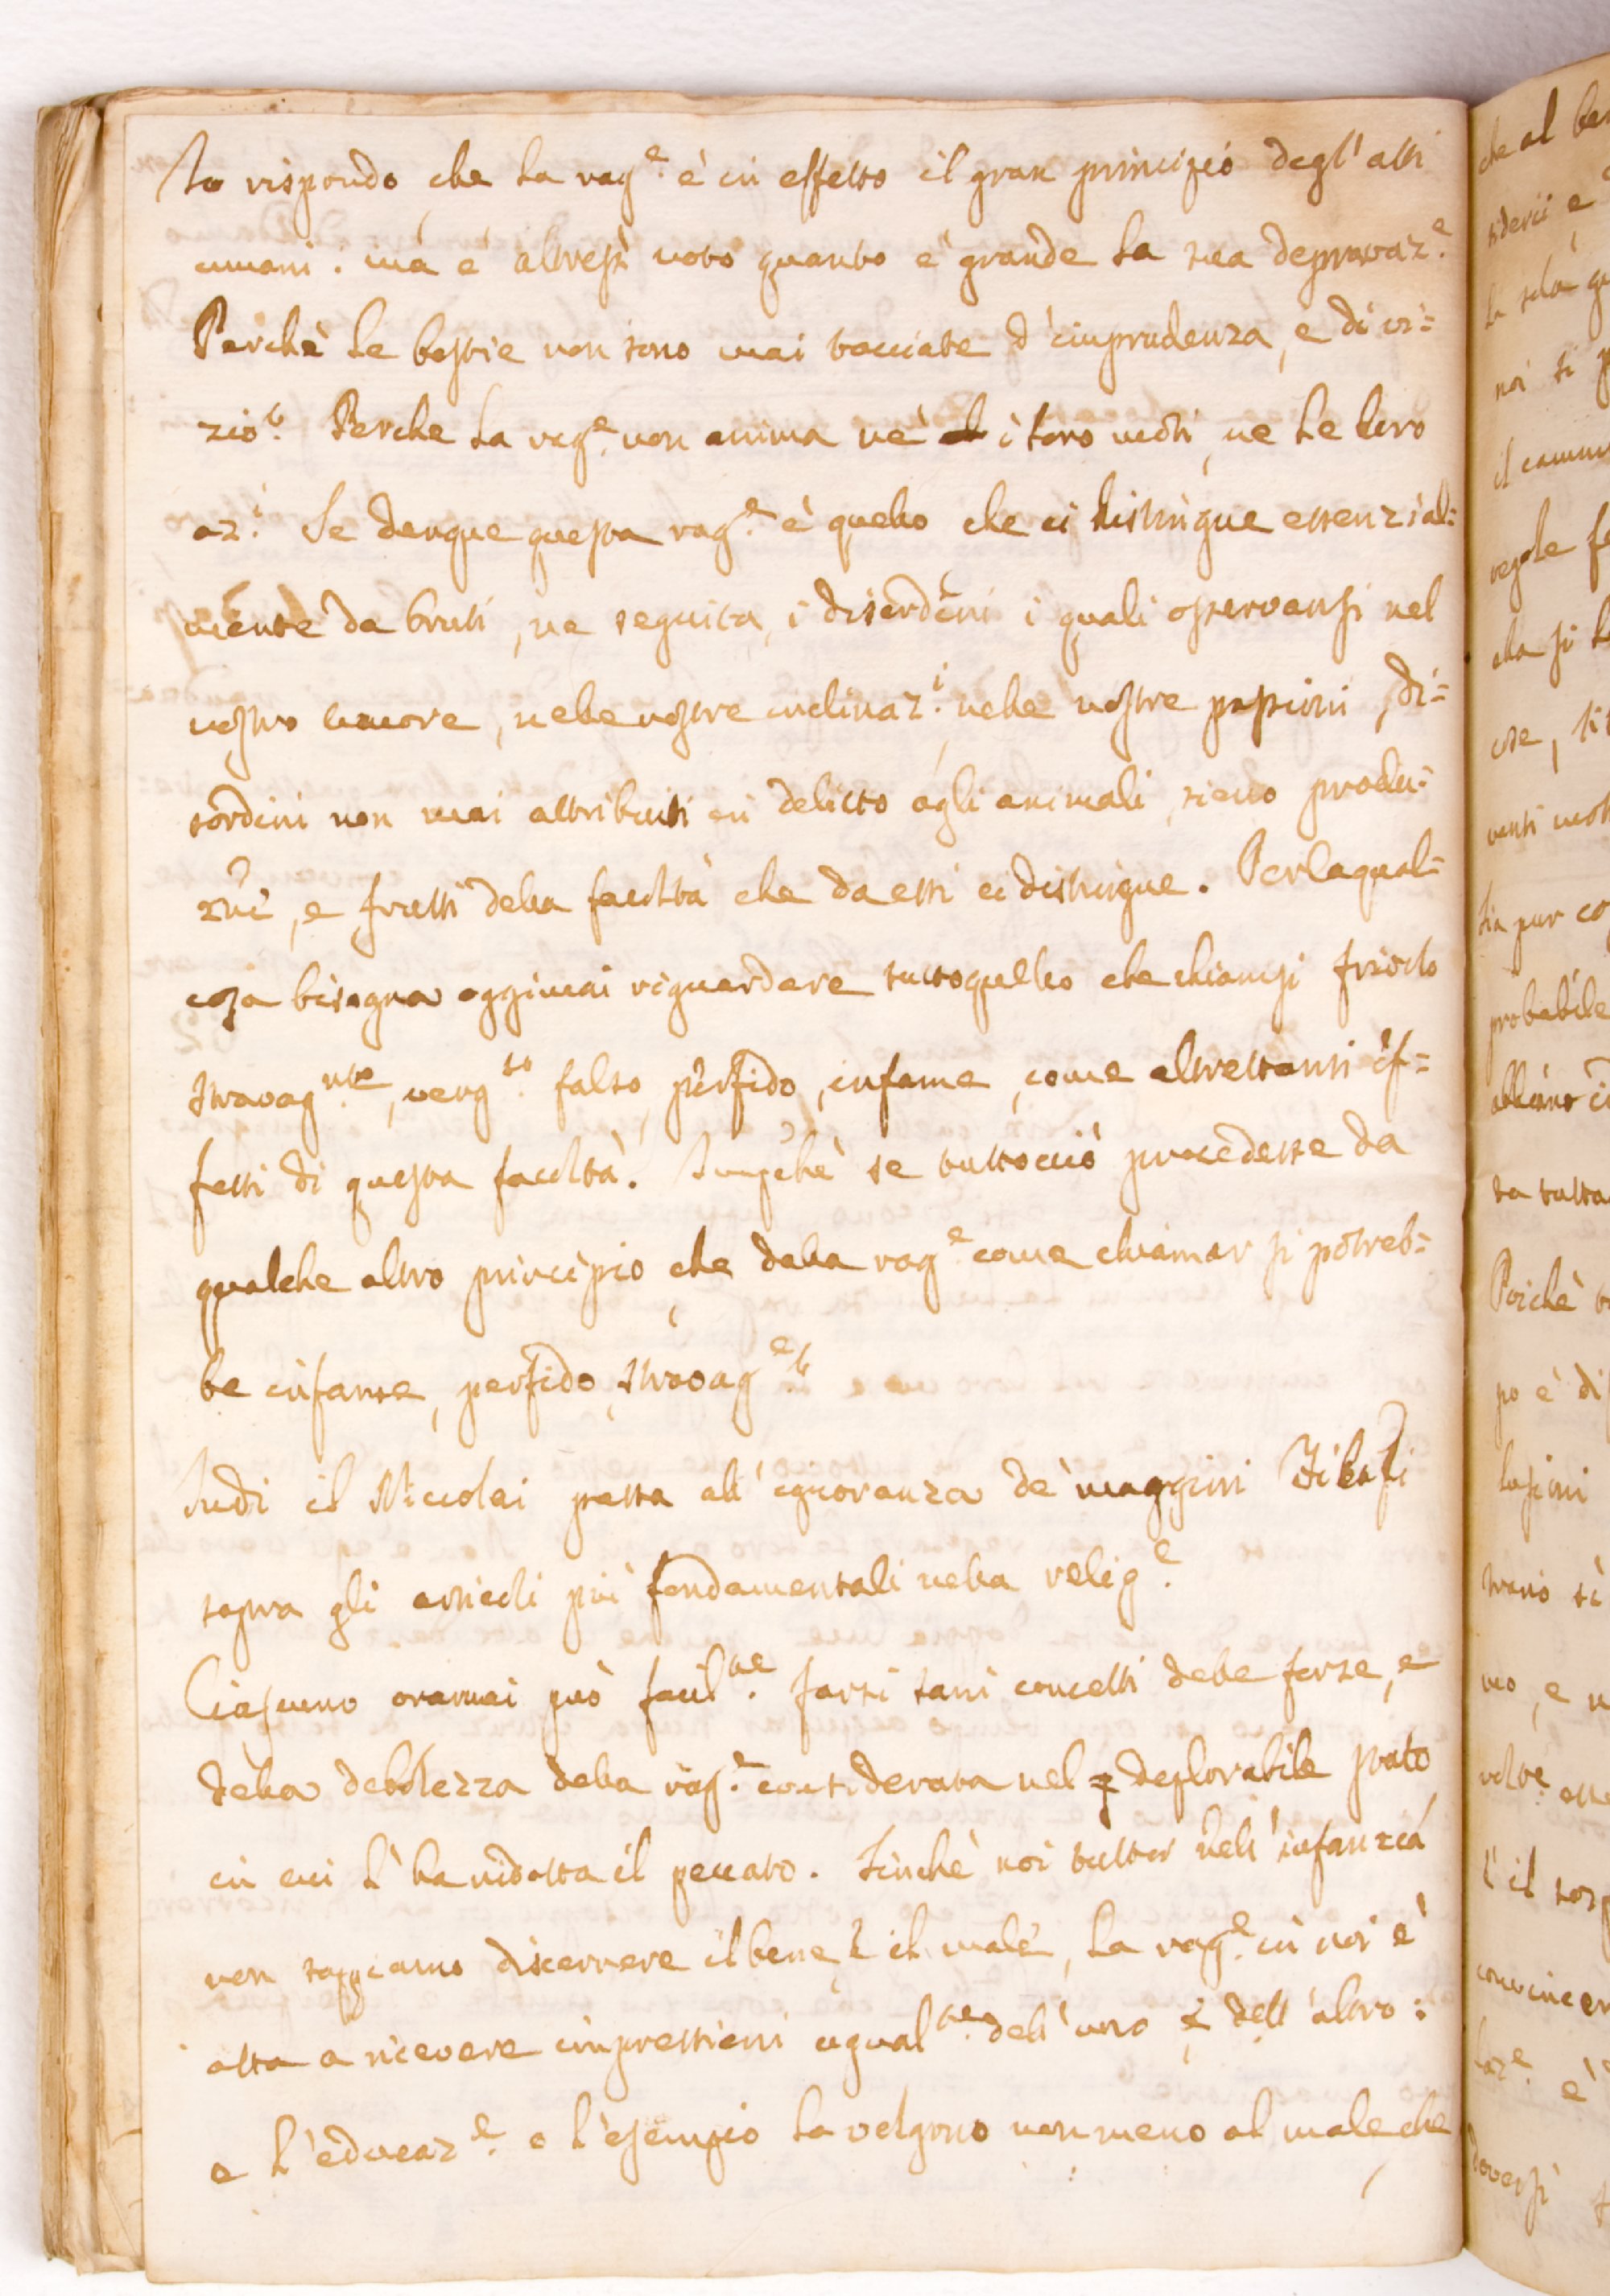 Io rispondo che la rag.e è in effetto il gran principio degl'atti
umani: mà è altresì noto quanto è grande la sua depravaz.e
Perchè le bestie non sono mai tacciate d'imprudenza, e di vi=
zio? Perche la rag.e non anima nè i loro moti, ne le loro
az.i Se dunque questa rag.e è quello che ci distingue essenzial=
mente da bruti, ne seguita, i disordini i quali osservansi nel
nostro umore, nelle nostre inclinaz.i nelle nostre passioni, di=
sordini non mai attribuiti in delitto agli animali, sieno produ=
zni, e frutti della facoltà che da essi ci distingue. Perlaqual=
cosa bisogna oggimai riguardare tuttoquello che chiamasi frivolo
stravag.nte, verg.so falso, perfido, infame, come altrettanti ef=
fetti di questa facoltà. Impchè se tuttociò procedesse da
qualche altro principio, che dalla rag.e come chiamar si potreb=
be infame, perfido, stravag.e?
Indi il Niccolai passa all'ignoranza de' maggiori Filosofi
sopra gli articoli più fondamentali nella relig.e
Ciascuno oramai può facil.me farsi sani concetti delle forze, e
della debolezza della rag.e considerata nel deplorabile stato,
in cui l'ha ridotta il peccato. Finchè noi tuttor nell'infanzia
non sappiamo discernere il bene, è il male, la rag.e in noi è
atta a ricevere impressioni ugual.me dell'uno, e dell'altro:
e l'educaz.e e l'esempio la volgono non meno al male, che
che al ben
siderii e
il camm
regole
ose,
sia pur co
probabile
sa tutta
Poichè
po è di
l'è il
convincer
doversi